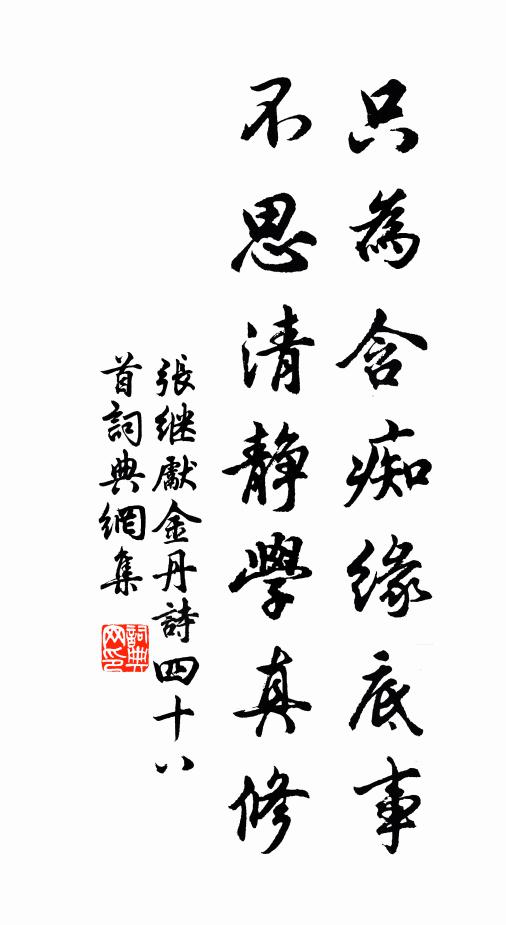 只為含痴緣底事
不思清靜學真修
張継獻金丹詩四十八
首詞典網集
詞典網印